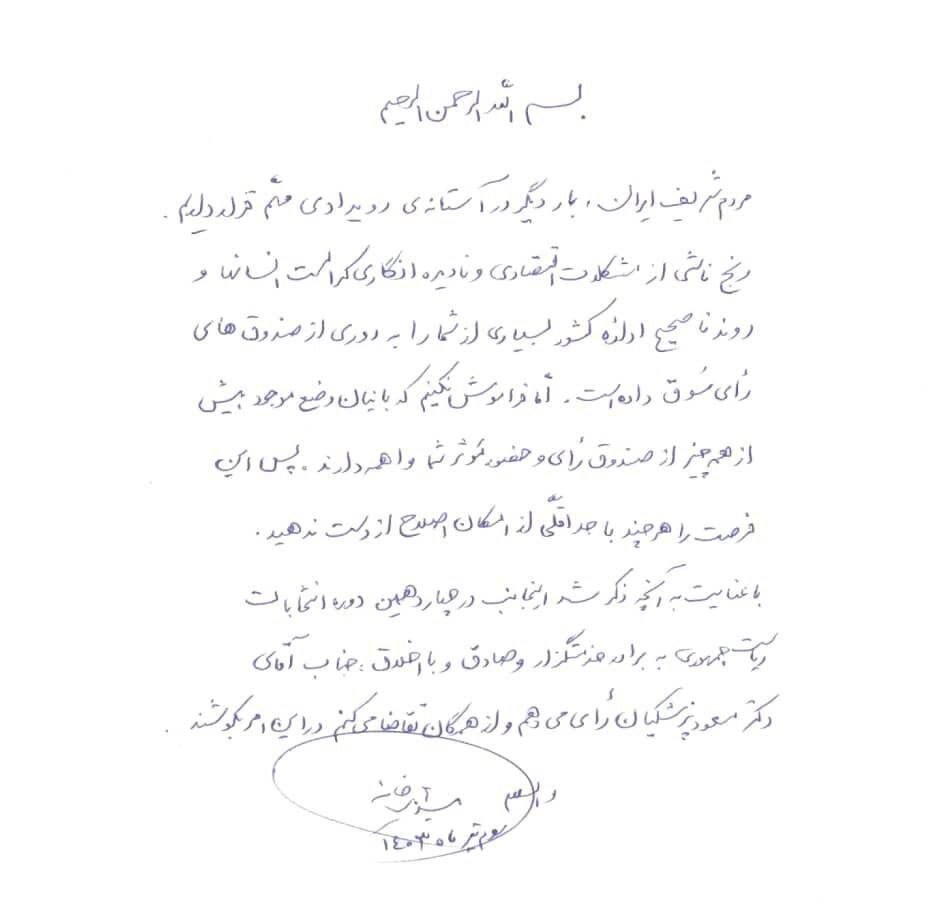 بسم الله الرحمن الرحیم
مردم شریف ایران، بار دیگر در آستانه‌ی رویدادی مهّم قرار داریم.
رنج ناشی از مشکلات اقتصادی و نادیده انگاری کرامت انسانها و
روند ناصحیح اداره کشور بسیاری از شما را به دوری از صندوق های
رأی سُوق داده است. امّا فراموش نکنیم که بانیان وضع موجود بیش
از هر چیز از صندوق رأی و حضور مُوثر شما واهمه دارند. پس این
فرصت را هر چند با حداقلّی از امکان اصلاح از دست ندهید.
با عنایت به آنچه ذکر شد اینجانب در چهاردهمین دوره انتخابات
ریاست جمهوری به برادر خدمتگزار و صادق و با اخلاق: جناب آقای
دکتر مسعود پزشکیان رأی می دهم و از همگان تقاضا می کنم در این امر بکوشند.
والسلام
تیر ماه ۱۴۰۳